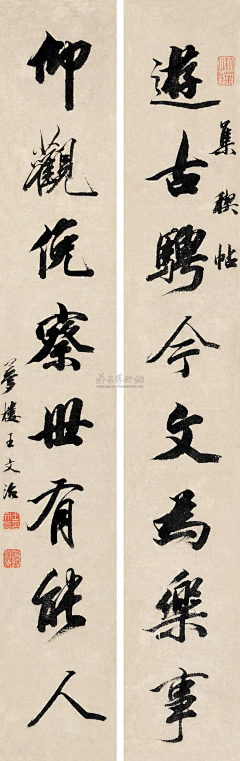 遊古騁今文為樂事
集禊帖
仰觀俛察世有能人
夢樓王文治